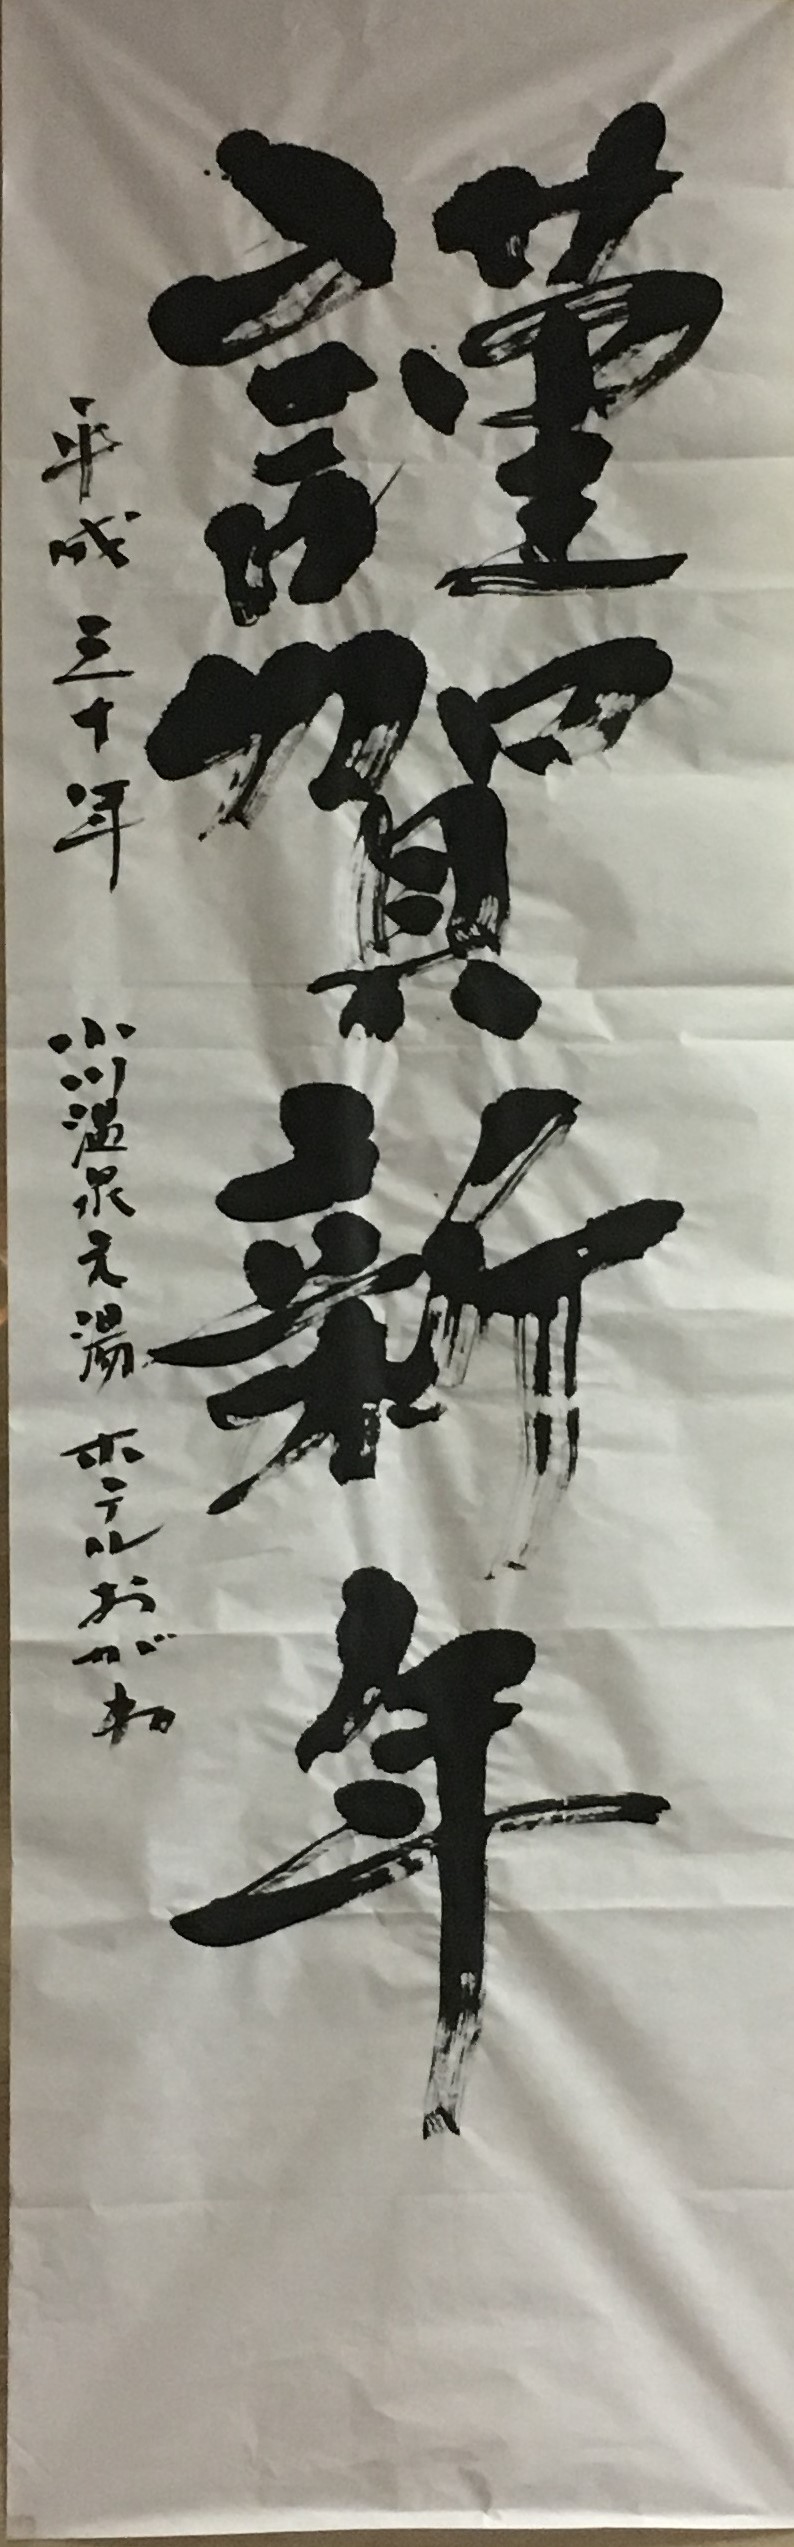 謹賀新年
平成三十年 小川温泉元湯 ホテルおがわ